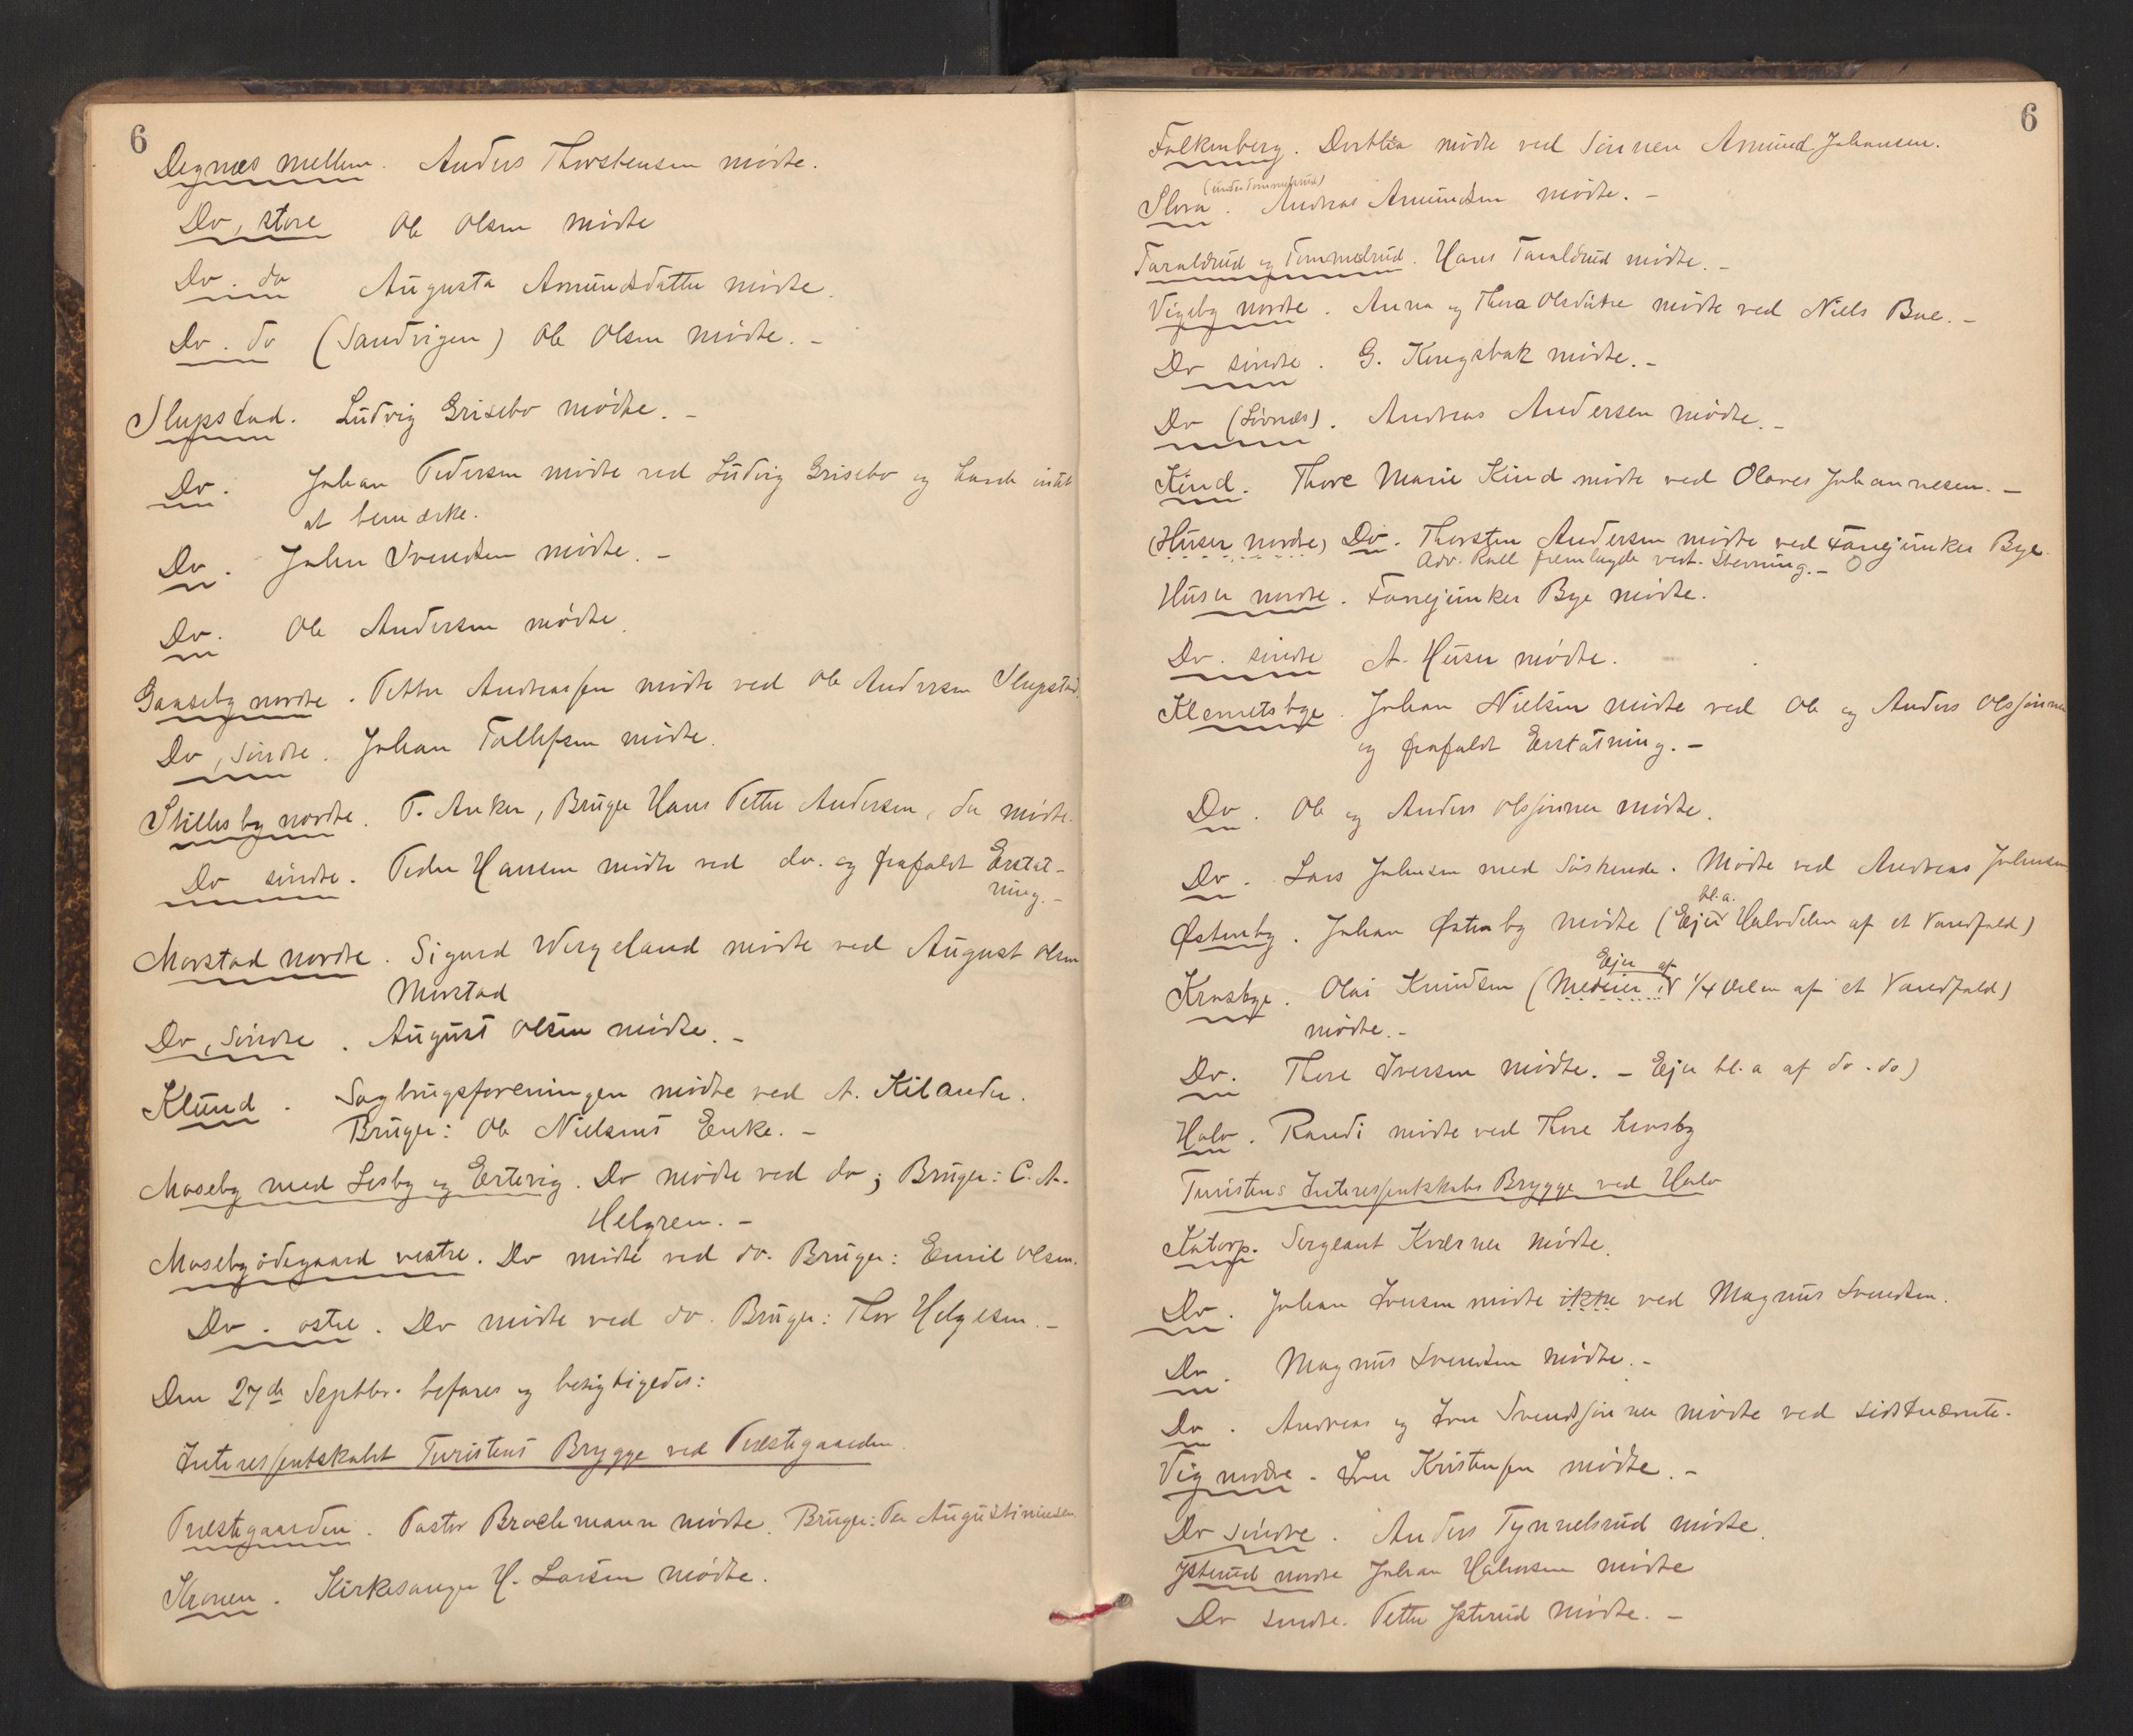 6
Degnæs mellem. Anders Thorstensen mødte.
Do, store Ole Olsen mødte
Do. do Augusta Amundsdatter mødte.
Do. do (Sandvigen) Ole Olsen mødte. –
Slupstad. Ludvig Grisebo mødte. –
Do. Johan Pedersen mødte ved Ludvig Grisebo og havde intet
at bemærke.
Do. John Svendsen mødte. –
Do. Ole Andersen mødte.
Gaaseby nordre. Petter Andreassen mødte ved Ole Andersen Slupstad.
Do, søndre. Johan Tollefsen mødte.
Skillesby nordre. P. Anker, Bruger Hans Petter Andersen, der mødte.
Do søndre. Peder Hansen mødte ved do. og frafaldt Erstat-
ning. –
Morstad nordre. Sigurd Wergeland mødte ved August Olsen
Morstad
Do, søndre. August Olsen mødte. –
Klund. Sagbrugsforeningen mødte ved A. Kilander.
Bruger: Ole Nielsens Enke. –
Moseby med Lisby og Ertevig. Do mødte ved do; Bruger: C. A.
Helgren. –
Mosebyødegaard vestre. Do mødte ved do. Bruger: Emil Olsen.
Do. østre. Do mødte ved do. Bruger: Thor Helgesen. –
Den 27de Septbr. befares og besigtigedes:
Interessentskabet Turistens Brygge ved Præstegaarden.
Præstegaarden. Pastor Brochmann mødte. Bruger: Per Augustinusen.
Kronen. Kirkesanger H. Larsen mødte.
6
Falkenberg. Dorthea mødte ved Sønnen Amund Johansen.
(under Tommelsrud)
Slora. Andreas Amundsen mødte. –
Taraldrud og Tommelsrud. Hans Taraldrud mødte. –
Vigeby nordre. Anna og Thora Olsdøtre mødte ved Niels Boe. –
Do søndre. G. Kongsbak mødte. –
Do (Løvnæs). Andreas Andersen mødte. –
Kind. Thore Marie Kind mødte ved Olaves Johannesen. –
(Huser nordre) Do. Thorsten Andersen mødte ved Fanejunker Bye.
Adv. Roll fremlagde vedt. Stevning. –
Huser nordre. Fanejunker Bye mødte.
Do. søndre A. Huser mødte.
Klemetsbye. Johan Nielsen mødte ved Ole og Anders Olssønner
og frafaldt Erstatning. –
Do. Ole og Anders Olssønner mødte.
Do. Lars Johnsen med Søskende. Mødte ved Andreas Johnsen
bl. a.
Østenby. Johan Østenby mødte (Ejer Halvdelen af et Vandfald)
Ejer af
Krosbye. Olai Knudsen (Medeier i 1/4 Delen af et Vandfald)
mødte. –
Do. Thore Iversen mødte. – Ejer bl. a af do. do)
Holo. Randi mødte ved Thore Krosby
Turistens Interessentskabs Brygge ved Holo
Katorp. Sergeant Kværner mødte.
Do. Johan Iversen mødte ikke ved Magnus Svendsen.
Do. Magnus Svendsen mødte. –
Do. Andreas og Iver Svendssønner mødte ved sidstnævnte.
Vig nordre. Iver Kristensen mødte. –
Do søndre. Anders Tynnelsrud mødte.
Jsterud nordre Johan Halvorsen mødte
Do søndre. Petter Jsterud mødte. –